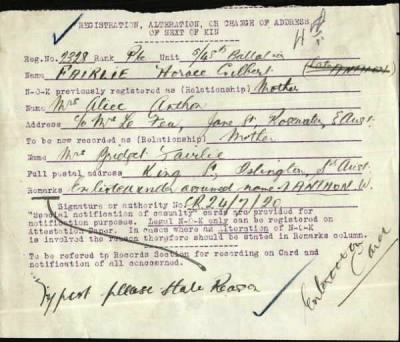 REGISTRATION, ALTERATION, OR CHANGE OF ADDRESS
OF NEXT OF KIN
Reg.No. 2328 Rank Pte Unit 5/48th Battalion
Name FAIRLIE Horace Gilbert (Late ANTHON)
N-O-K previously registered as (Relationship) Mother
Name Mrs Alice Anthon
Address C/o Mrs Yo Jane St, Rosewater, S Aust
To be now recorded as (Relationship) Mother
Name Mrs Bridget Fairlie
Full postal address King St, Islington, St Aust.
Remarks Enlisted under assumed name of ANTHON W.
Signature or authority No CR 24/7/20
"Special notification of casualty" cards are provided for
notification purposes. Legal N-O-K only can be registered on
Attestation Paper. In cases where an alteration of N-O-K
is involved the reason therefore should be stated in Remarks
column.
To be referred to Records Section for recording on Card and
notification of all concerned.
Typist please State Reason
Entered on
Card